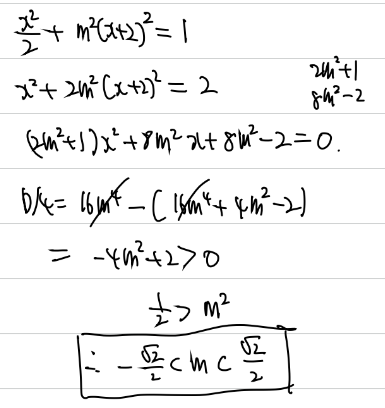 x²/2 + m²(x+2)² = 1
x² + 2m²(x+2)² = 2
2m²+1
8m²-2
(2m²+1)x² + 8m²x + 8m²-2 = 0.
D/4 = 16m⁴ - (16m⁴ + 4m² - 2)
= -4m² + 2 > 0
1/2 > m²
∴ -√2/2 < m < √2/2